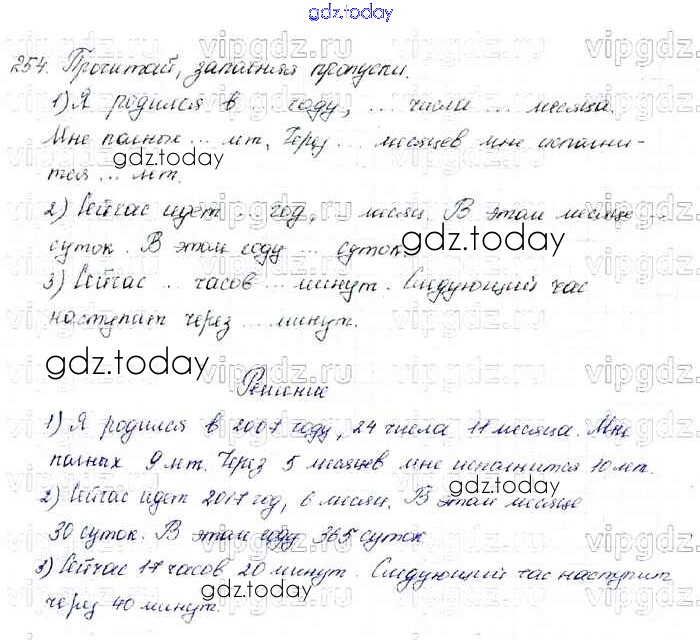 gdz.today
254. Прочитай, заполняя пропуски.
1) Я родился в ... году, ... числа ... месяца.
Мне полных ... лет. Через ... месяцев мне исполни-
тся ... лет.
2) Сейчас идет ... год, ... месяц. В этом месяце ...
суток. В этом году ... суток.
3) Сейчас ... часов ... минут. Следующий час
наступит через ... минут.
Решение
1) Я родился в 2007 году, 24 числа 11 месяца. Мне
полных 9 лет. Через 5 месяцев мне исполнится 10 лет.
2) Сейчас идет 2017 год, 6 месяц. В этом месяце
30 суток. В этом году 365 суток.
3) Сейчас 17 часов 20 минут. Следующий час наступит
через 40 минут.
gdz.today
gdz.today
gdz.today
gdz.today
gdz.today
vipgdz.ru